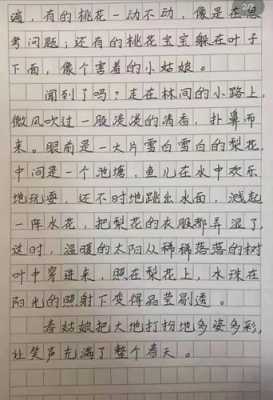 滴，有的桃花一动不动，像是在思
考问题；还有的桃花宝宝躲在叶子
下面，像个害羞的小姑娘。
闻到了吗？走在林间的小路上，
微风吹过一股淡淡的清香，扑鼻而
来。眼前是一大片雪白雪白的梨花，
中间是一个池塘，鱼儿在水中欢乐
地玩耍，还不时地跳出水面，溅起
一阵水花，把梨花的衣服都弄湿了，
这时，温暖的太阳从稀稀落落的树
叶中穿进来，照在梨花上，水珠在
阳光的照射下变得晶莹剔透。
春姑娘把大地打扮地多姿多彩，
让笑声充满了整个春天。